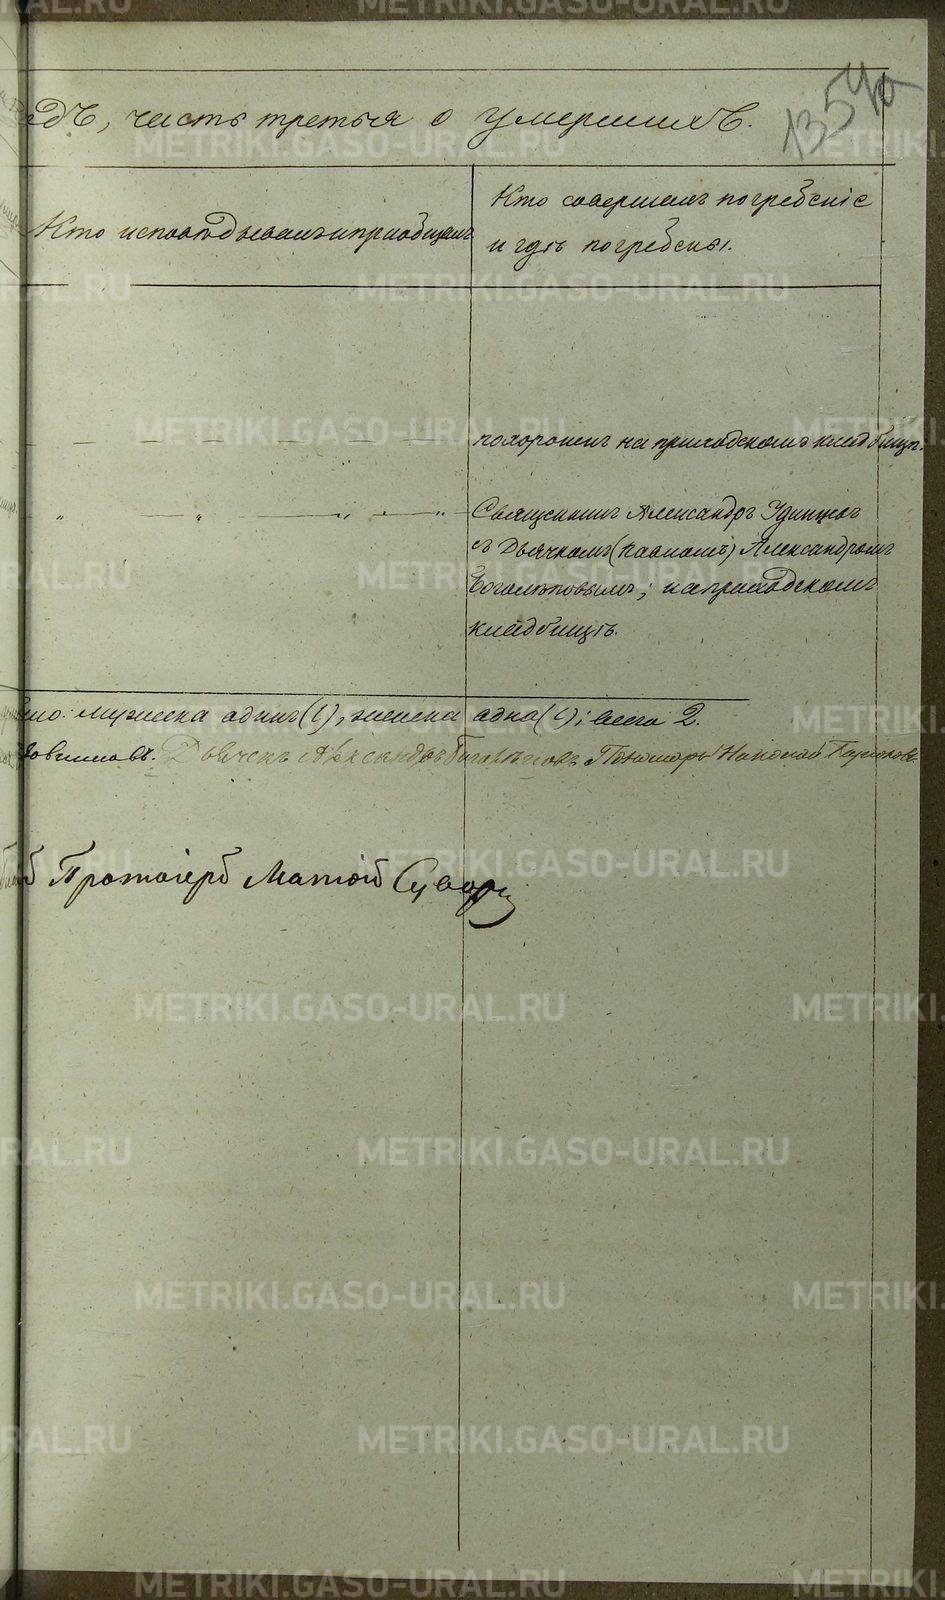 одъ, часть третья о умершихъ.
Кто исповѣдывалъ и приобщалъ
Кто совершалъ погребеніе
и гдѣ погребены.
похороненъ на приходскомъ кладбищѣ.
Священникъ Александръ Удинцовъ
съ Дьячкомъ Александромъ
Боголѣповымъ; на приходскомъ
кладбищѣ.
мужеска одинъ (1), женска одна (1); всего 2.
Дьячекъ Александръ Боголѣповъ Пономарь Николай
Протоіерей
METRIKI.GASO-URAL.RU